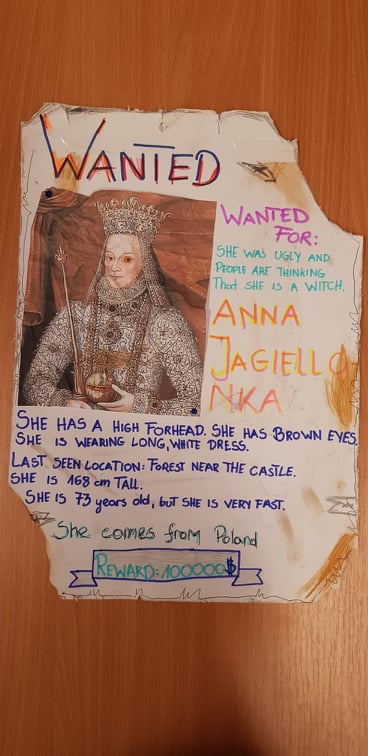 WANTED
WANTED
FOR:
SHE WAS UGLY AND
PEOPLE ARE THINKING
That SHE IS A WITCH.
ANNA
JAGIELLO
NKA
SHE HAS A HIGH FORHEAD. SHE HAS BROWN EYES.
SHE IS WEARING LONG, WHITE DRESS.
LAST SEEN LOCATION: FOREST NEAR THE CASTLE.
SHE IS 168 cm TALL.
SHE IS 73 years old, but SHE IS VERY FAST.
She comes from Poland
REWARD: 100000$